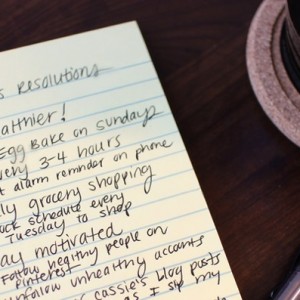 s Resolutions
althier!
Egg Bake on Sundays
very 3-4 hours
t alarm reminder on phone
ly grocery shopping
ock schedule every
Tuesday to shop
ay motivated
Follow healthy people on
Pinterest
unfollow unhealthy accounts
cassie's blog posts
as I sip my